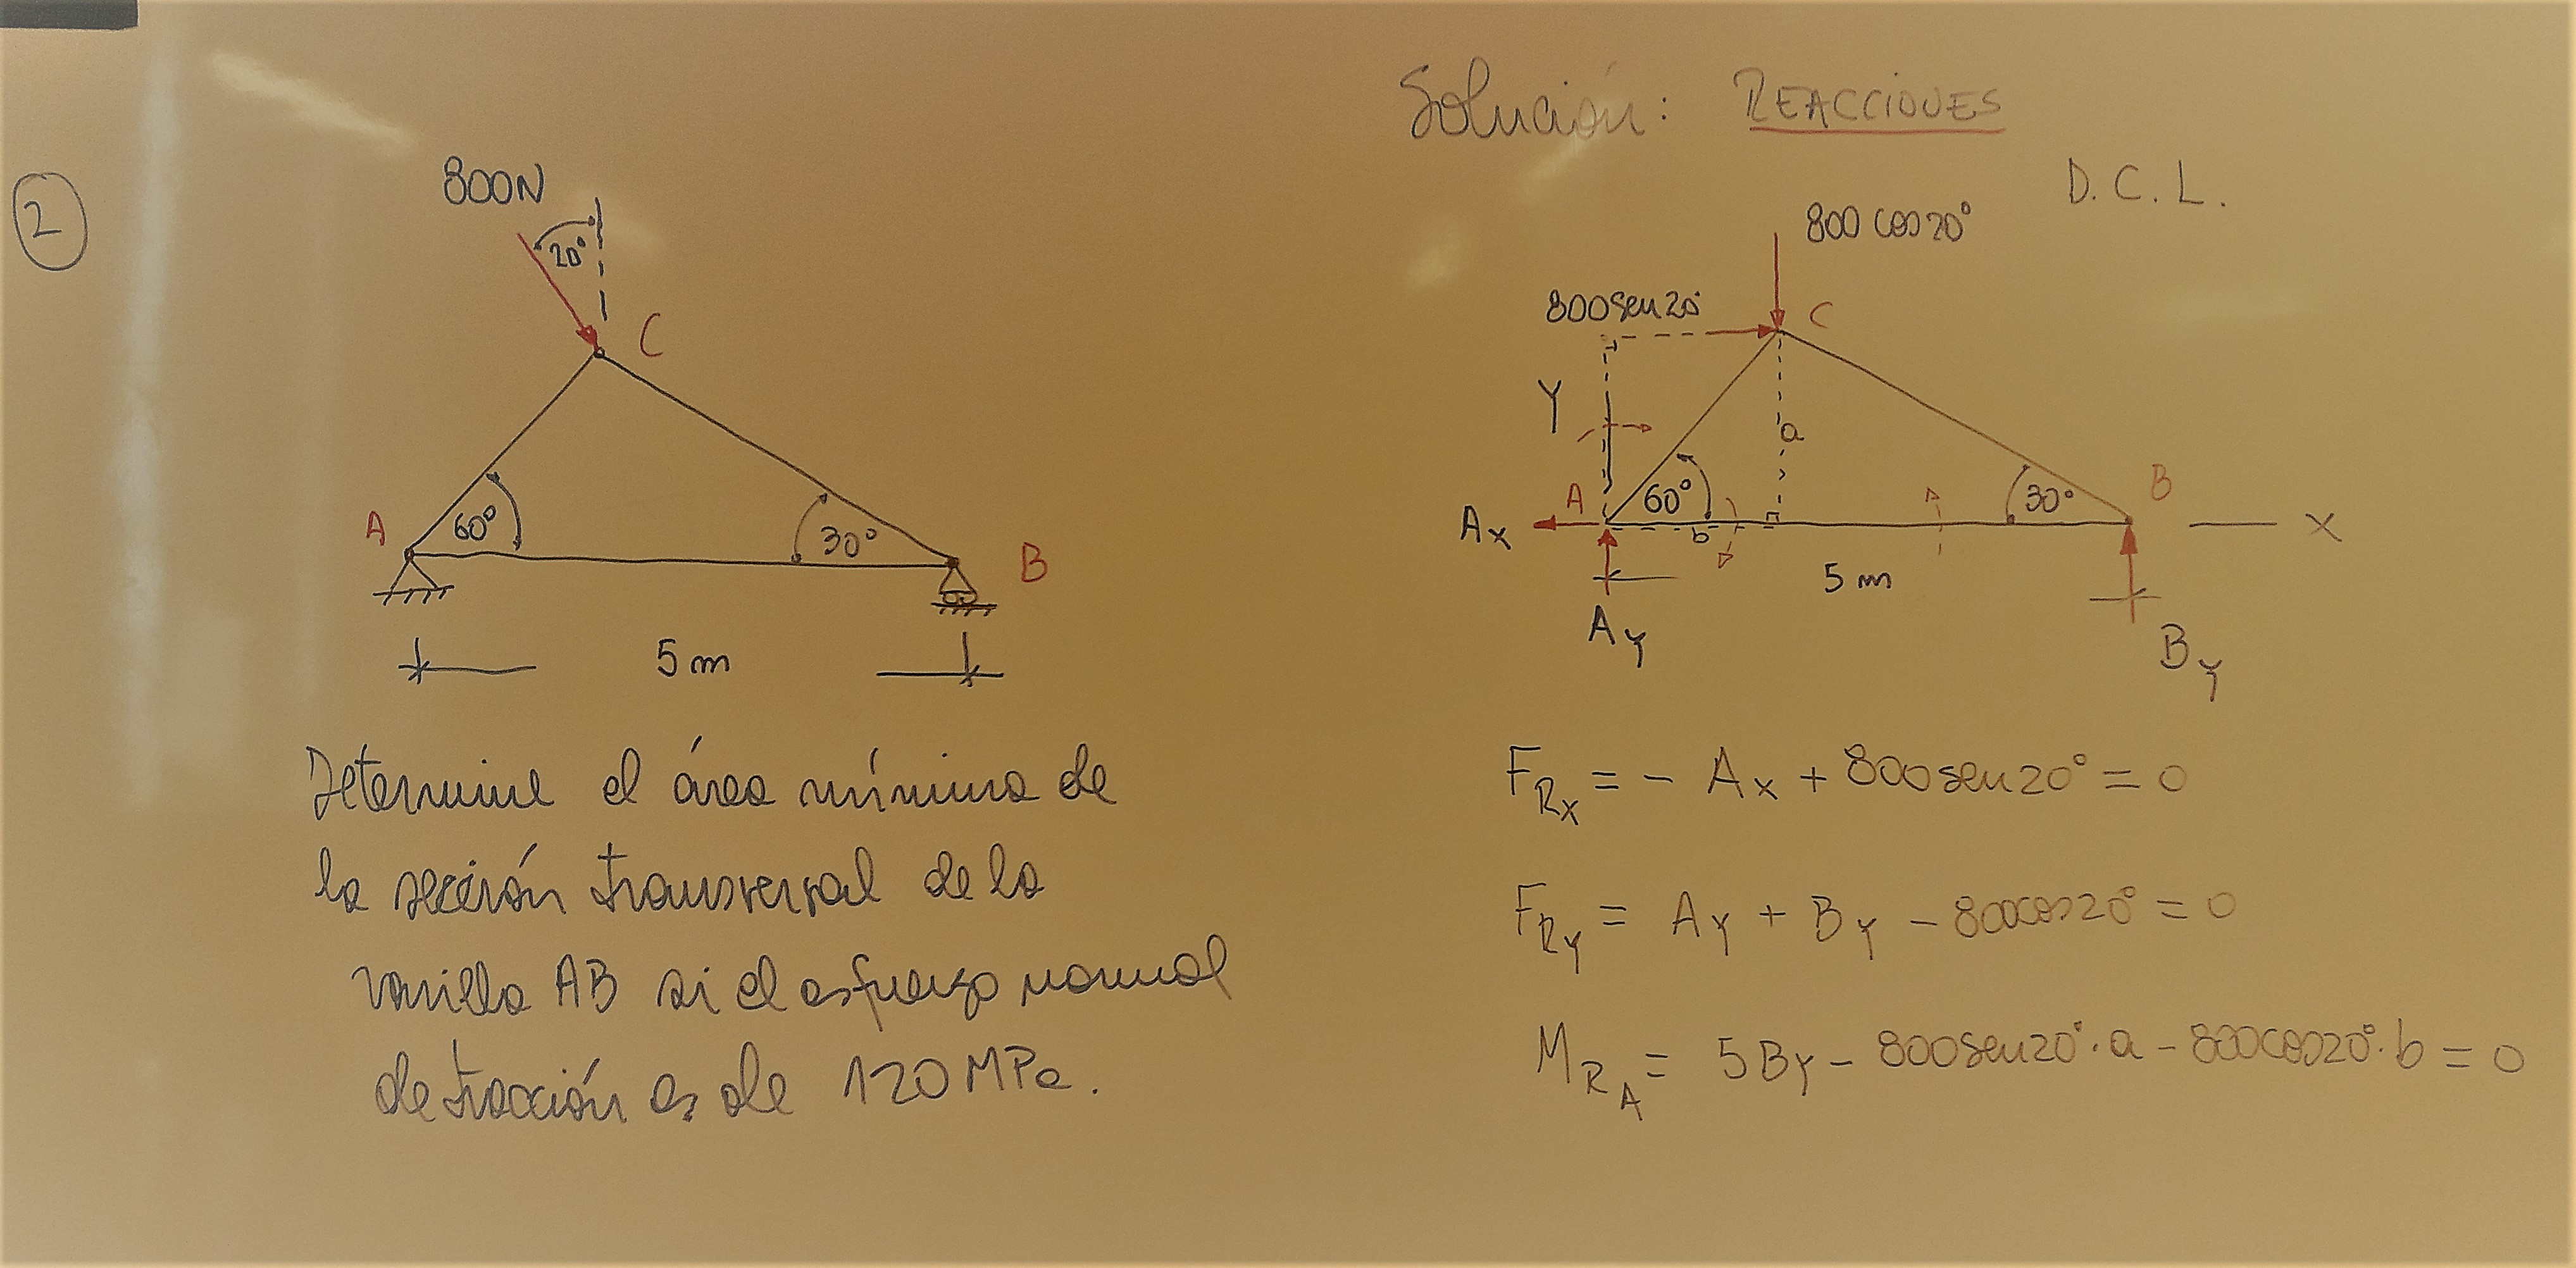 2
800N
20°
C
A
60°
30°
B
5 m
Determine el área mínima de
la sección transversal de la
varilla AB si el esfuerzo normal
de tracción es de 120 MPa.
Solución: REACCIONES
D. C. L.
800 cos 20°
800 sen 20°
C
Y
a
A
60°
30°
B
Ax
b
X
5 m
AY
BY
FRX = - AX + 800 sen 20° = 0
FRY = AY + BY - 800 cos 20° = 0
MRA = 5BY - 800 sen 20° · a - 800 cos 20° · b = 0